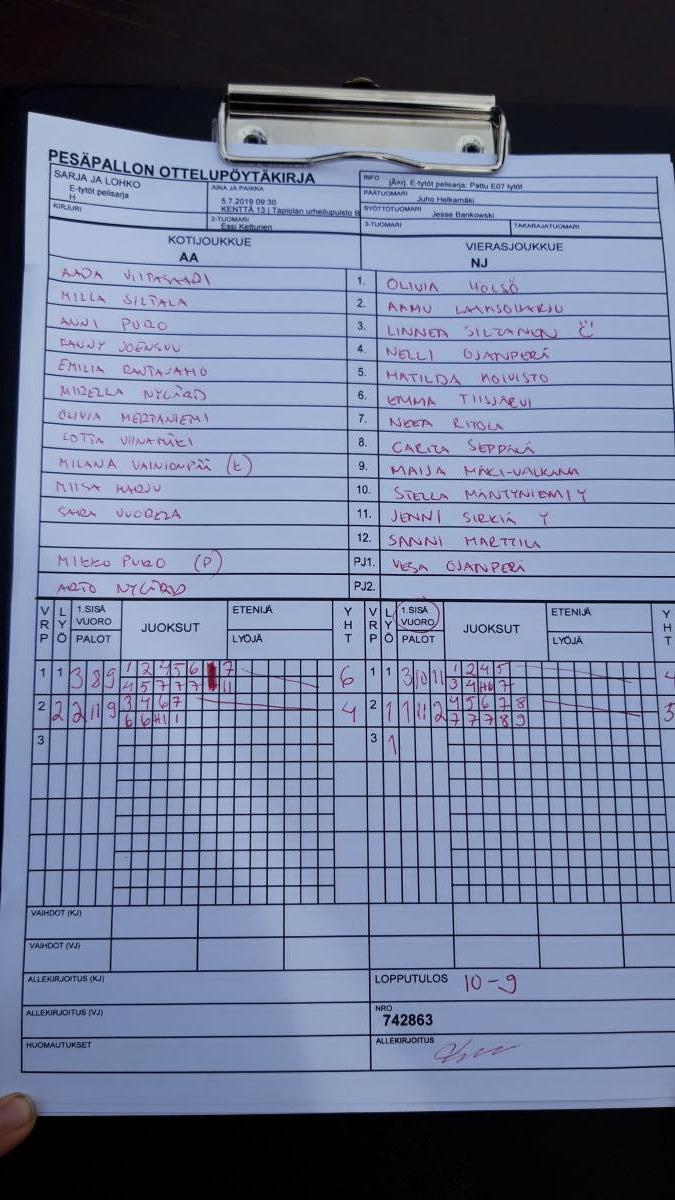 PESÄPALLON OTTELUPÖYTÄKIRJA
SARJA JA LOHKO
E-tytöt pelisarja
H
AIKA JA PAIKKA
5.7.2019 09:30
KENTTÄ 13 | Tapiolan urheilupuisto B
KIRJURI
2-TUOMARI
Essi Kettunen
INFO
jÄnrj. E-tytöt pelisarja: Pattu E07 tytöt
PÄÄTUOMARI
Juho Helkamäki
SYÖTTÖTUOMARI
Jesse Bankowski
3-TUOMARI
TAKARAJATUOMARI
KOTIJOUKKUE
AA
VIERASJOUKKUE
NJ
AADA VIITASAARI 1. OLIVIA HOLSÖ
MILLA SILTALA 2. AAMU LAAKSOHARJU
ANNI PURO 3. LINNEA SILTANEN
FANNY JOENSUU 4. NELLI OJANPERÄ
EMILIA RAUTAJAHO 5. MATILDA KOIVISTO
MIRELLA NYGÅRD 6. EMMA TIISJÄRVI
OLIVIA MERTANIEMI 7. NEEA RITOLA
LOTTA VIINAMÄKI 8. CARITA SEPPÄLÄ
MILANA VAINIONPÄÄ 9. MAIJA MÄKI-VALKAMA
MIISA HARJU 10. STELLA MÄNTYNIEMI Y
SARA VUORELA 11. JENNI SIRKIÄ Y
12. SANNI MARTTILA
MIKKO PURO (P) PJ1. VESA OJANPERÄ
ARTO NYGÅRD PJ2.
VRP LYÖ 1.SISÄ VUORO PALOT JUOKSUT ETENIJÄ LYÖJÄ YHT VRP LYÖ 1.SISÄ VUORO PALOT JUOKSUT ETENIJÄ LYÖJÄ YHT
1 1 3 8 9 1 2 4 5 6 7 6 1 1 3 10 11 1 2 4 5 4
4 5 7 7 7 11 3 4 7
2 2 2 11 9 3 4 6 7 4 2 1 1 11 2 4 5 6 7 8 5
6 6 7 7 7 8 9
3 3 1
VAIHDOT (KJ)
VAIHDOT (VJ)
ALLEKIRJOITUS (KJ)
LOPPUTULOS 10-9
ALLEKIRJOITUS (VJ)
NRO
742863
HUOMAUTUKSET
ALLEKIRJOITUS